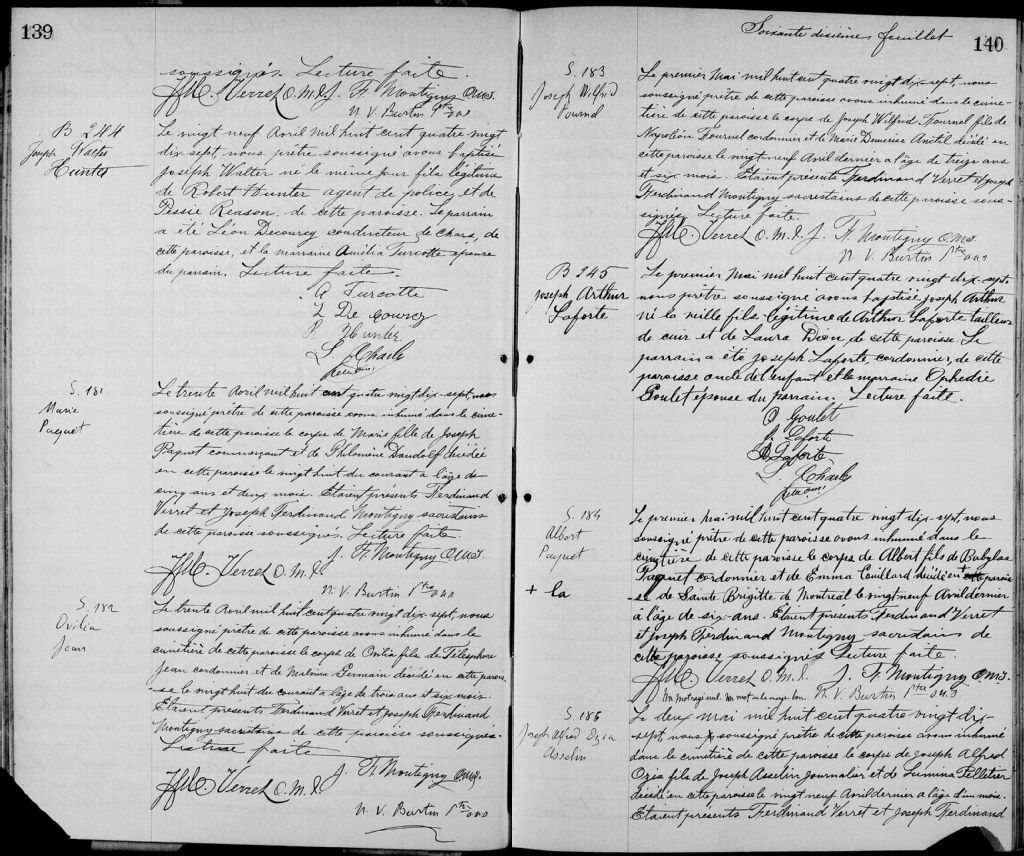 139
soussignés. Lecture faite.
Verret O.M.I. J. F. Montigny O.M.I.
N. V. Burtin Ptre O.M.I.
B 244
Joseph Walter
Hunter
Le vingt neuf Avril mil huit cent quatre vingt
dix-sept, nous prêtre soussigné avons baptisé
Joseph Walter né le même jour fils légitime
de Robert Hunter agent de police et de
Bessie Reason de cette paroisse. Le parrain
a été Léon Decourcy conducteur de chars, de
cette paroisse, et la marraine Amilia Turcotte épouse
du parrain. Lecture faite.
A Turcotte
L De Courcy
R Hunter
L. Charles
S. 181
Marie
Paquet
Le trente Avril mil huit cent quatre vingt dix-sept, nous
soussigné prêtre de cette paroisse avons inhumé dans le cime-
tière de cette paroisse le corps de Marie fille de Joseph
Paquet commerçant et de Philomène Dandolf décédée
en cette paroisse le vingt huit du courant à l'âge de
cinq ans et deux mois. Etaient présents Ferdinand
Verret et Joseph Ferdinand Montigny sacristains
de cette paroisse soussignés. Lecture faite.
J. F. Montigny O.M.I.
Verret O.M.I.
N. V. Burtin Ptre O.M.I.
S. 182
Ovilia
Jean
Le trente Avril mil huit cent quatre vingt dix-sept, nous
soussigné prêtre de cette paroisse avons inhumé dans le
cimetière de cette paroisse le corps de Ovilia fils de Télesphore
Jean cordonnier et de Malvina Germain décédé en cette parois-
-se le vingt huit du courant à l'âge de trois ans et six mois.
Etaient présents Ferdinand Verret et Joseph Ferdinand
Montigny sacristains de cette paroisse soussignés.
Lecture faite
J. F. Montigny O.M.I.
Verret O.M.I.
N. V. Burtin Ptre O.M.I.
Soixante dixième feuillet
140
S. 183
Joseph Wilfrid
Fournel
Le premier Mai mil huit cent quatre vingt dix-sept, nous
soussigné prêtre de cette paroisse avons inhumé dans le cime-
tière de cette paroisse le corps de Joseph Wilfrid Fournel fils de
Napoléon Fournel cordonnier et de Marie Demerise Anctil décédé en
cette paroisse le vingt-neuf Avril dernier à l'âge de treize ans
et six mois. Etaient présents Ferdinand Verret et Joseph
Ferdinand Montigny sacristains de cette paroisse sous-
signés. Lecture faite.
Verret O.M.I. J. F. Montigny O.M.I.
N. V. Burtin Ptre O.M.I.
B 245
Joseph Arthur
Laforte
Le premier Mai mil huit cent quatre vingt dix-sept
nous prêtre soussigné avons baptisé Joseph Arthur
né la veille fils légitime de Arthur Laforte tailleur
de cuir et de Laura Dion, de cette paroisse. Le
parrain a été Joseph Laforte, cordonnier, de cette
paroisse oncle de l'enfant et la marraine Ophedie
Goulet épouse du parrain. Lecture faite.
O Goulet
J. Laforte
A Laforte
L. Charles
S. 184
Albert
Paquet
+ la
Le premier Mai mil huit cent quatre vingt dix-sept, nous
soussigné prêtre de cette paroisse avons inhumé dans le
cimetière de cette paroisse le corps de Albert fils de Babylas
Paquet cordonnier et de Emma Couillard décédé en + cette parois
-se de Sainte Brigitte de Montreal le vingt neuf Avril dernier
à l'âge de six-ans. Etaient présents Ferdinand Verret
et Joseph Ferdinand Montigny sacristains de
cette paroisse soussignés Lecture faite.
Verret O.M.I. J. F. Montigny O.M.I.
Un mot rayé nul. Un mot à la marge bon. N. V. Burtin Ptre O.M.I.
S. 185
Joseph Alfred Ozia
Asselin
Le deux Mai mil huit cent quatre vingt dix-
sept, nous soussigné prêtre de cette paroisse avons inhumé
dans le cimetière de cette paroisse le corps de Joseph Alfred
Ozia fils de Joseph Asselin journalier et de Lumina Pelletier
décédé en cette paroisse le vingt neuf Avril dernier à l'âge d'un mois.
Etaient présents Ferdinand Verret et Joseph Ferdinand